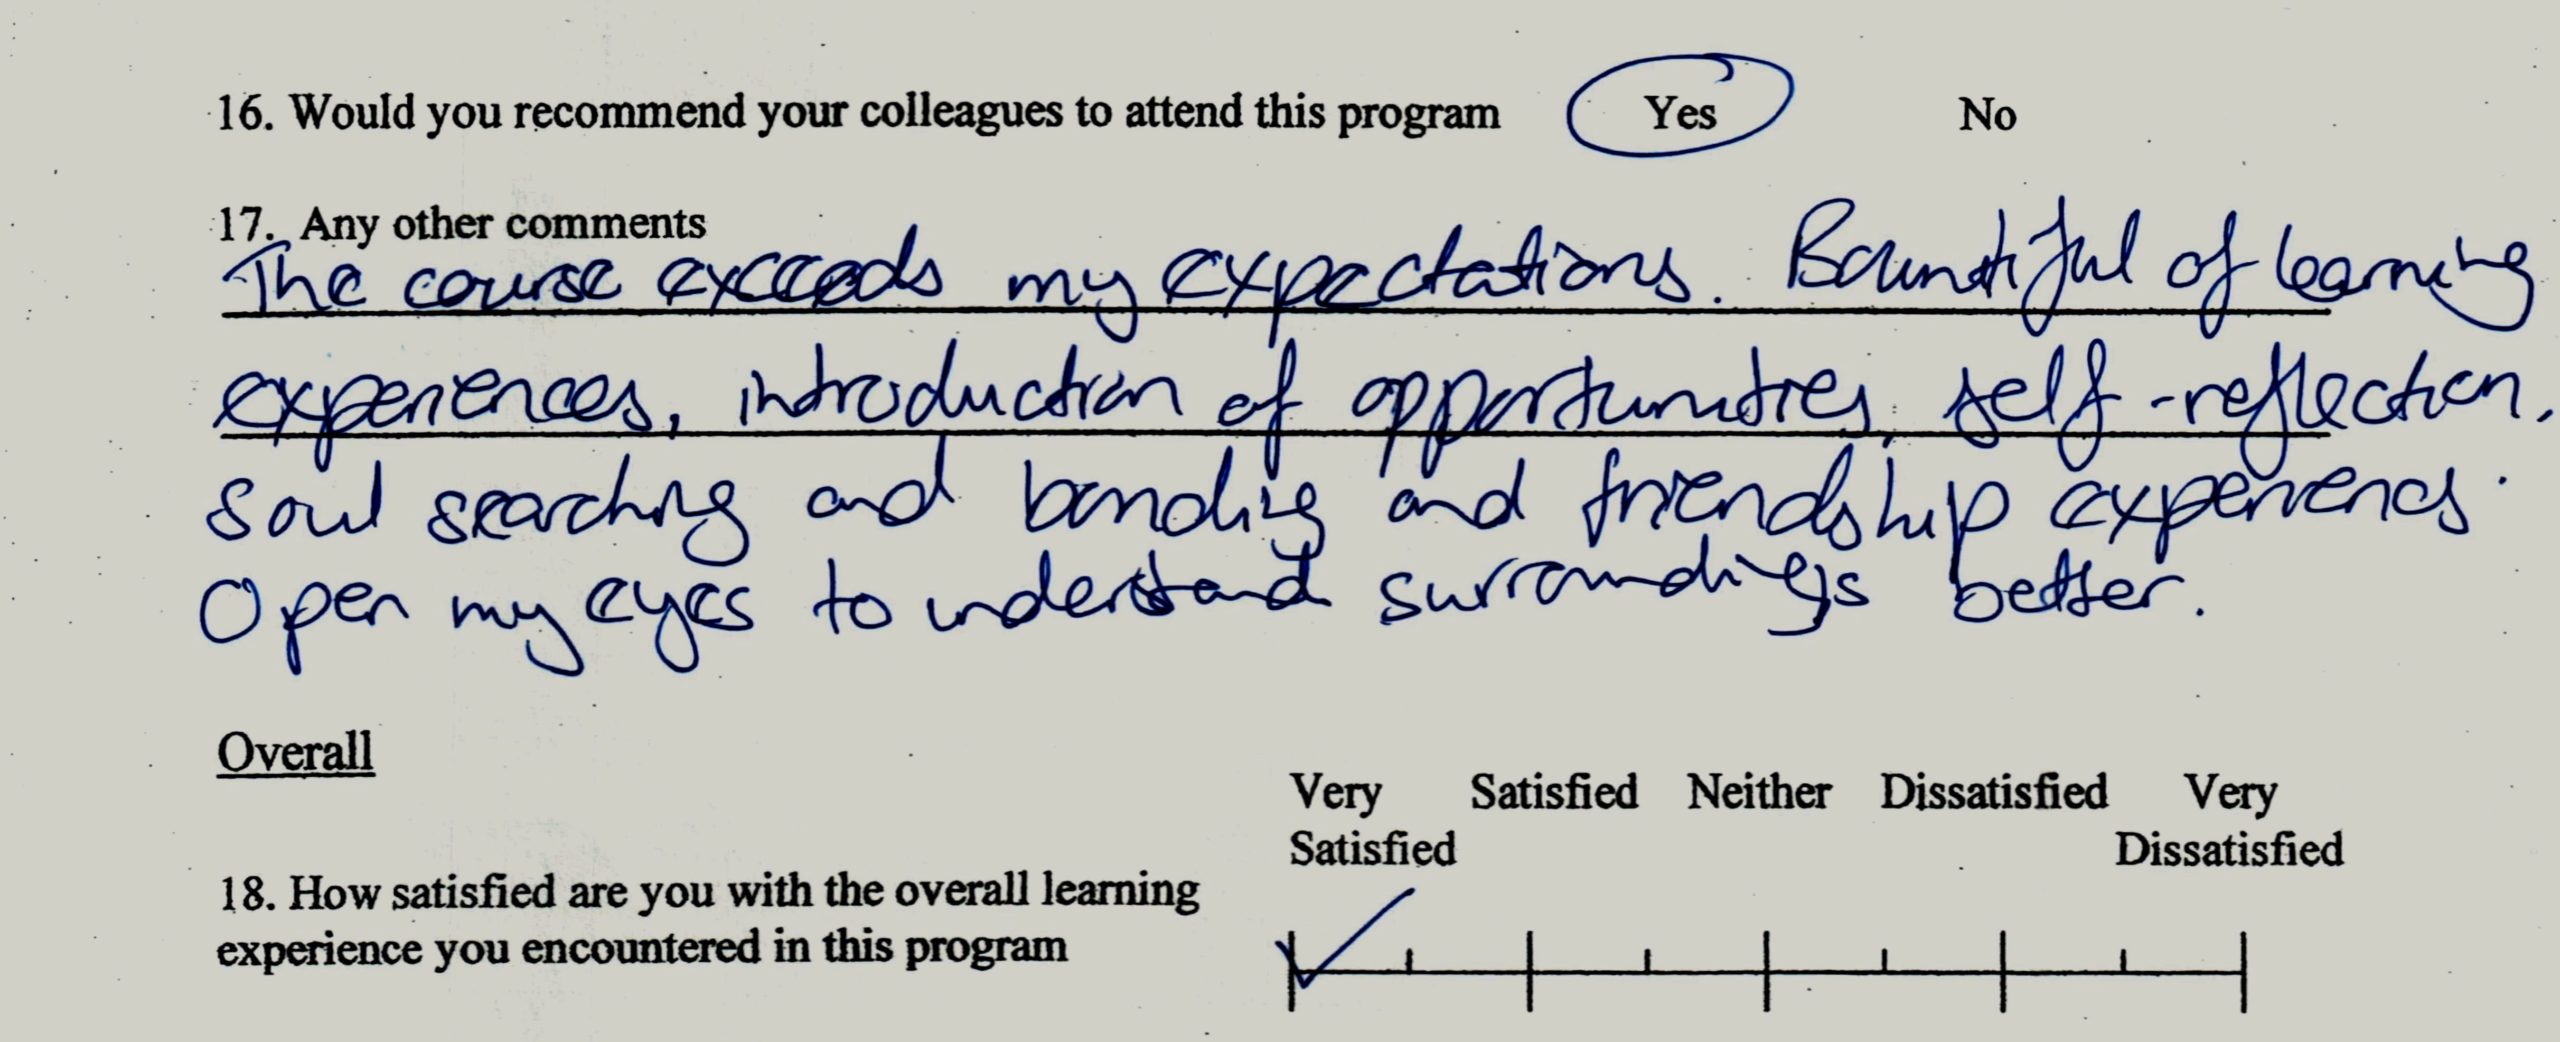 16. Would you recommend your colleagues to attend this program Yes No
17. Any other comments
The course exceeds my expectations. Bountiful of learning
experiences, introduction of opportunities, self-reflection,
soul searching and bonding and friendship experiences.
Open my eyes to understand surroundings better.
Overall
Very Satisfied Neither Dissatisfied Very
Satisfied Dissatisfied
18. How satisfied are you with the overall learning
experience you encountered in this program